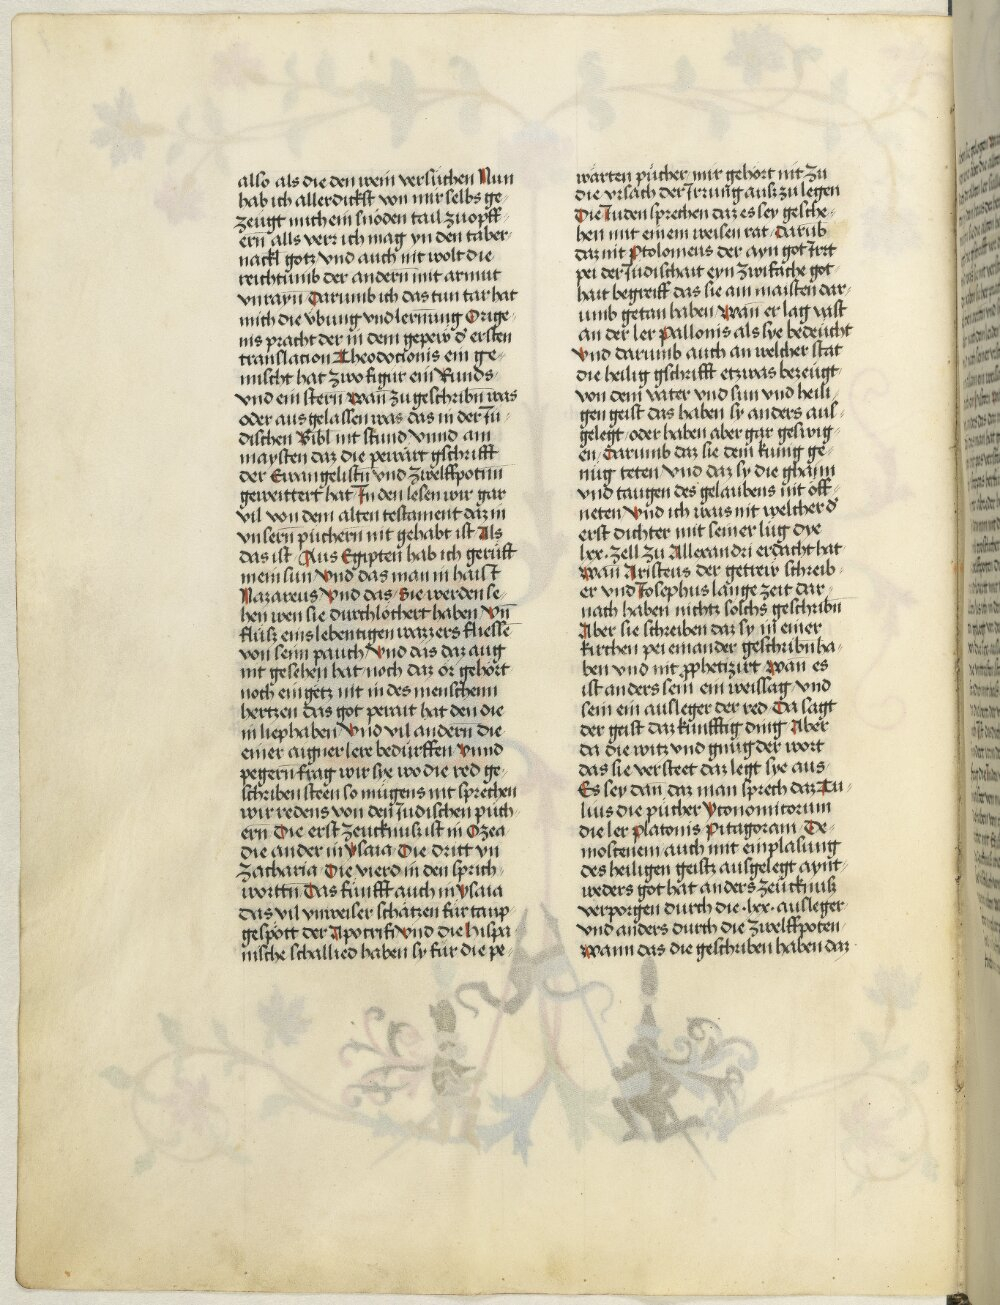 also als die den wein versuchen Nun
hab ich allerdickst von mir selbs ge-
zeugt mich ein snöden tail zu opff-
ern als verr ich mag yn den taber-
nackl gotz vnd auch nit wolt die
reichtumb der andern mit armut
vnrayn Darumb ich das tun tar hat
mich die vbung vnd lernung Orige-
nis pracht der in dem gepew d' ersten
translation Theodotionis ein ge-
mischt hat zwo figur ein Runds
vnd ein stern wan̄ zu geschribn̄ was
oder aus gelassen was das in der Ju-
dischen Bibl nit stund vnnd am
maysten daz die pewart gschrifft
der Ewangelistn̄ vnd zwelffpotnn
geweittert hat In den lesen wir gar
vil von dem alten testament daz in
vnsern püchern nit gehabt ist Als
das ist Aus Egipten hab ich gerufft
mein sun Vnd das man in haist
Nazareus Vnd das Sie werden se-
hen wen sie durchlochert haben Vn̄
fluss eins lebentigen wazzers fliesse
von seim pauch Vnd das daz aug
nit gesehen hat noch daz or gehört
noch ein getz nit in des menschenn
hertzen das got perait hat den die
in liephaben Vnd vil andern die
einer aigner lere bedürffen Vnnd
pegern frag wir sye wo die red ge-
schriben steen so mugens nit sprechen
wir redens von den Judischen puch-
ern Die erst zeucknuss ist in Ozea
die ander in Ysaia Die dritt yn
Zacharia Die vierd in den sprich-
worttn̄ Das funfft auch in Ysaia
das vil vnweiser schätzen für taup
gespött der Apotrifi vnd die Hispa
nische schallied haben sy für die pe-
wärten pücher mir gehört nit zu
die vrsach der Irrung auszzulegen
Die Juden sprechen daz es sey gesche-
hen mit einem weisen rat Darub
daz nit Ptolomeus der ayn got Irrt
pei der Judischait eyn zwifache got
hait begreiff das sie am maisten dar-
umb getan haben Wan er lag vast
an der ler Pallonis als sye bedeucht
Vnd darumb auch an welcher stat
die heilig gschrifft etzwas bezeugt
von dem vater vnd sun vnd heili
gen geist das haben sy anders aus-
gelegt oder haben aber gar geswig-
en Darumb daz sie dem kung ge-
nug teten vnd daz sy die ghaim
vnd taugen des gelaubens nit off-
neten Vnd ich wais nit welcher d'
erst dichter mit seiner lug dye
lxx. zell zu Allexandri erdacht hat
Wan̄ Aristeus der getrew schreib-
er vnd Josephus lange zeit dar-
nach haben nichtz solchs geschribn̄
Aber sie schreiben daz sy in einer
kirchen pei einander geschribn̄ ha-
ben vnd nit ꝓphetizirt Wan es
ist anders sein ein weissag vnd
sein ein ausleger der red Da sagt
der geist daz künfftig ding Aber
da die witz vnd gnug der wort
das sie versteet daz legt sye aus
Es sey dan daz man sprech daz Tu-
lius die pücher Yconomicorum
die ler Platonis Pitagoram De-
mostenem auch mit einplasung
des heiligen geistz ausgelegt aynt-
weders got hat anders zeucknusz
verporgen durch die .lxx. ausleger
vnd anders durch die zwelffpoten
Wann das die geschriben haben daz